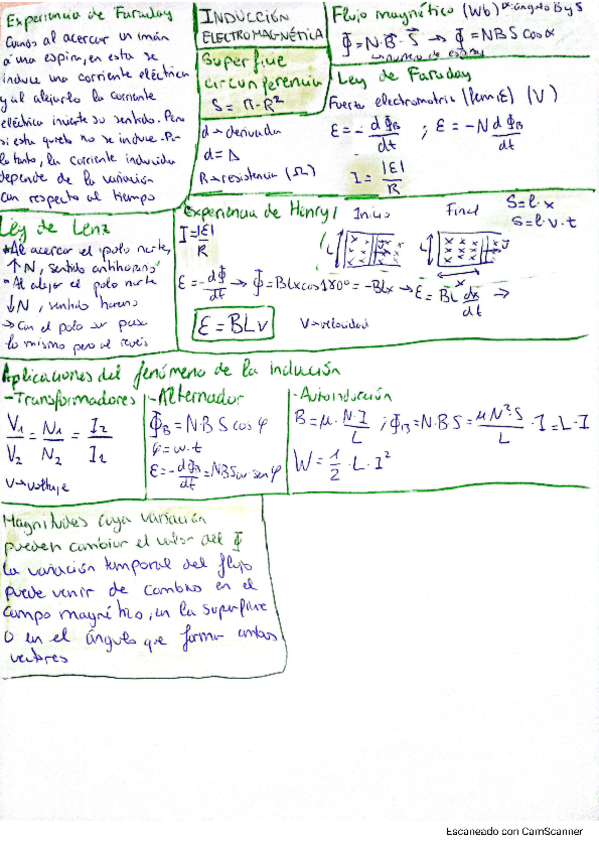 Experiencia de Faraday
al acercar un imán
a una espira, en esta se
induce una corriente eléctrica
y al alejarlo la corriente
eléctrica invierte su sentido. Pero
si esta quieto no se induce. Por
lo tanto, la corriente inducida
depende de la variación
con respecto al tiempo
INDUCCIÓN
ELECTROMAGNÉTICA
Superficie
circunferencia
S = π·R²
d → derivada
d = Δ
R → resistencia (Ω)
Flujo magnético (Wb) α: ángulo B y S
Φ = N·B·S → Φ = NBS cos α
número de espiras
Ley de Faraday
Fuerza electromotriz (fem, ε) (V)
ε = - dΦB/dt ; ε = -N dΦB/dt
I = |ε|/R
Ley de Lenz
Al acercar el polo norte,
↑N, sentido antihorario
Al alejar el polo norte
↓N, sentido horario
→ Con el polo sur pasa
lo mismo pero al revés
Experiencia de Henry
Inicio
Final
S = l·x
S = l·v·t
I = |ε|/R
ε = -dΦ/dt → Φ = BLx cos 180° = -BLx → ε = BL dx/dt →
ε = BLv
V → velocidad
Aplicaciones del fenómeno de la inducción
- Transformadores
V1/V2 = N1/N2 = I2/I2
V → voltaje
- Alternador
ΦB = N·B·S cos φ
φ = w·t
ε = -dΦB/dt = NBSw sen φ
- Autoinducción
B = μ· N·I/L ; ΦB = N·B·S = μN²·S/L · I = L·I
W = 1/2 · L · I²
Magnitudes cuya variación
pueden cambiar el valor del Φ
La variación temporal del flujo
puede venir de cambios en el
campo magnético, en la superficie
o en el ángulo que forman ambos
vectores
Escaneado con CamScanner